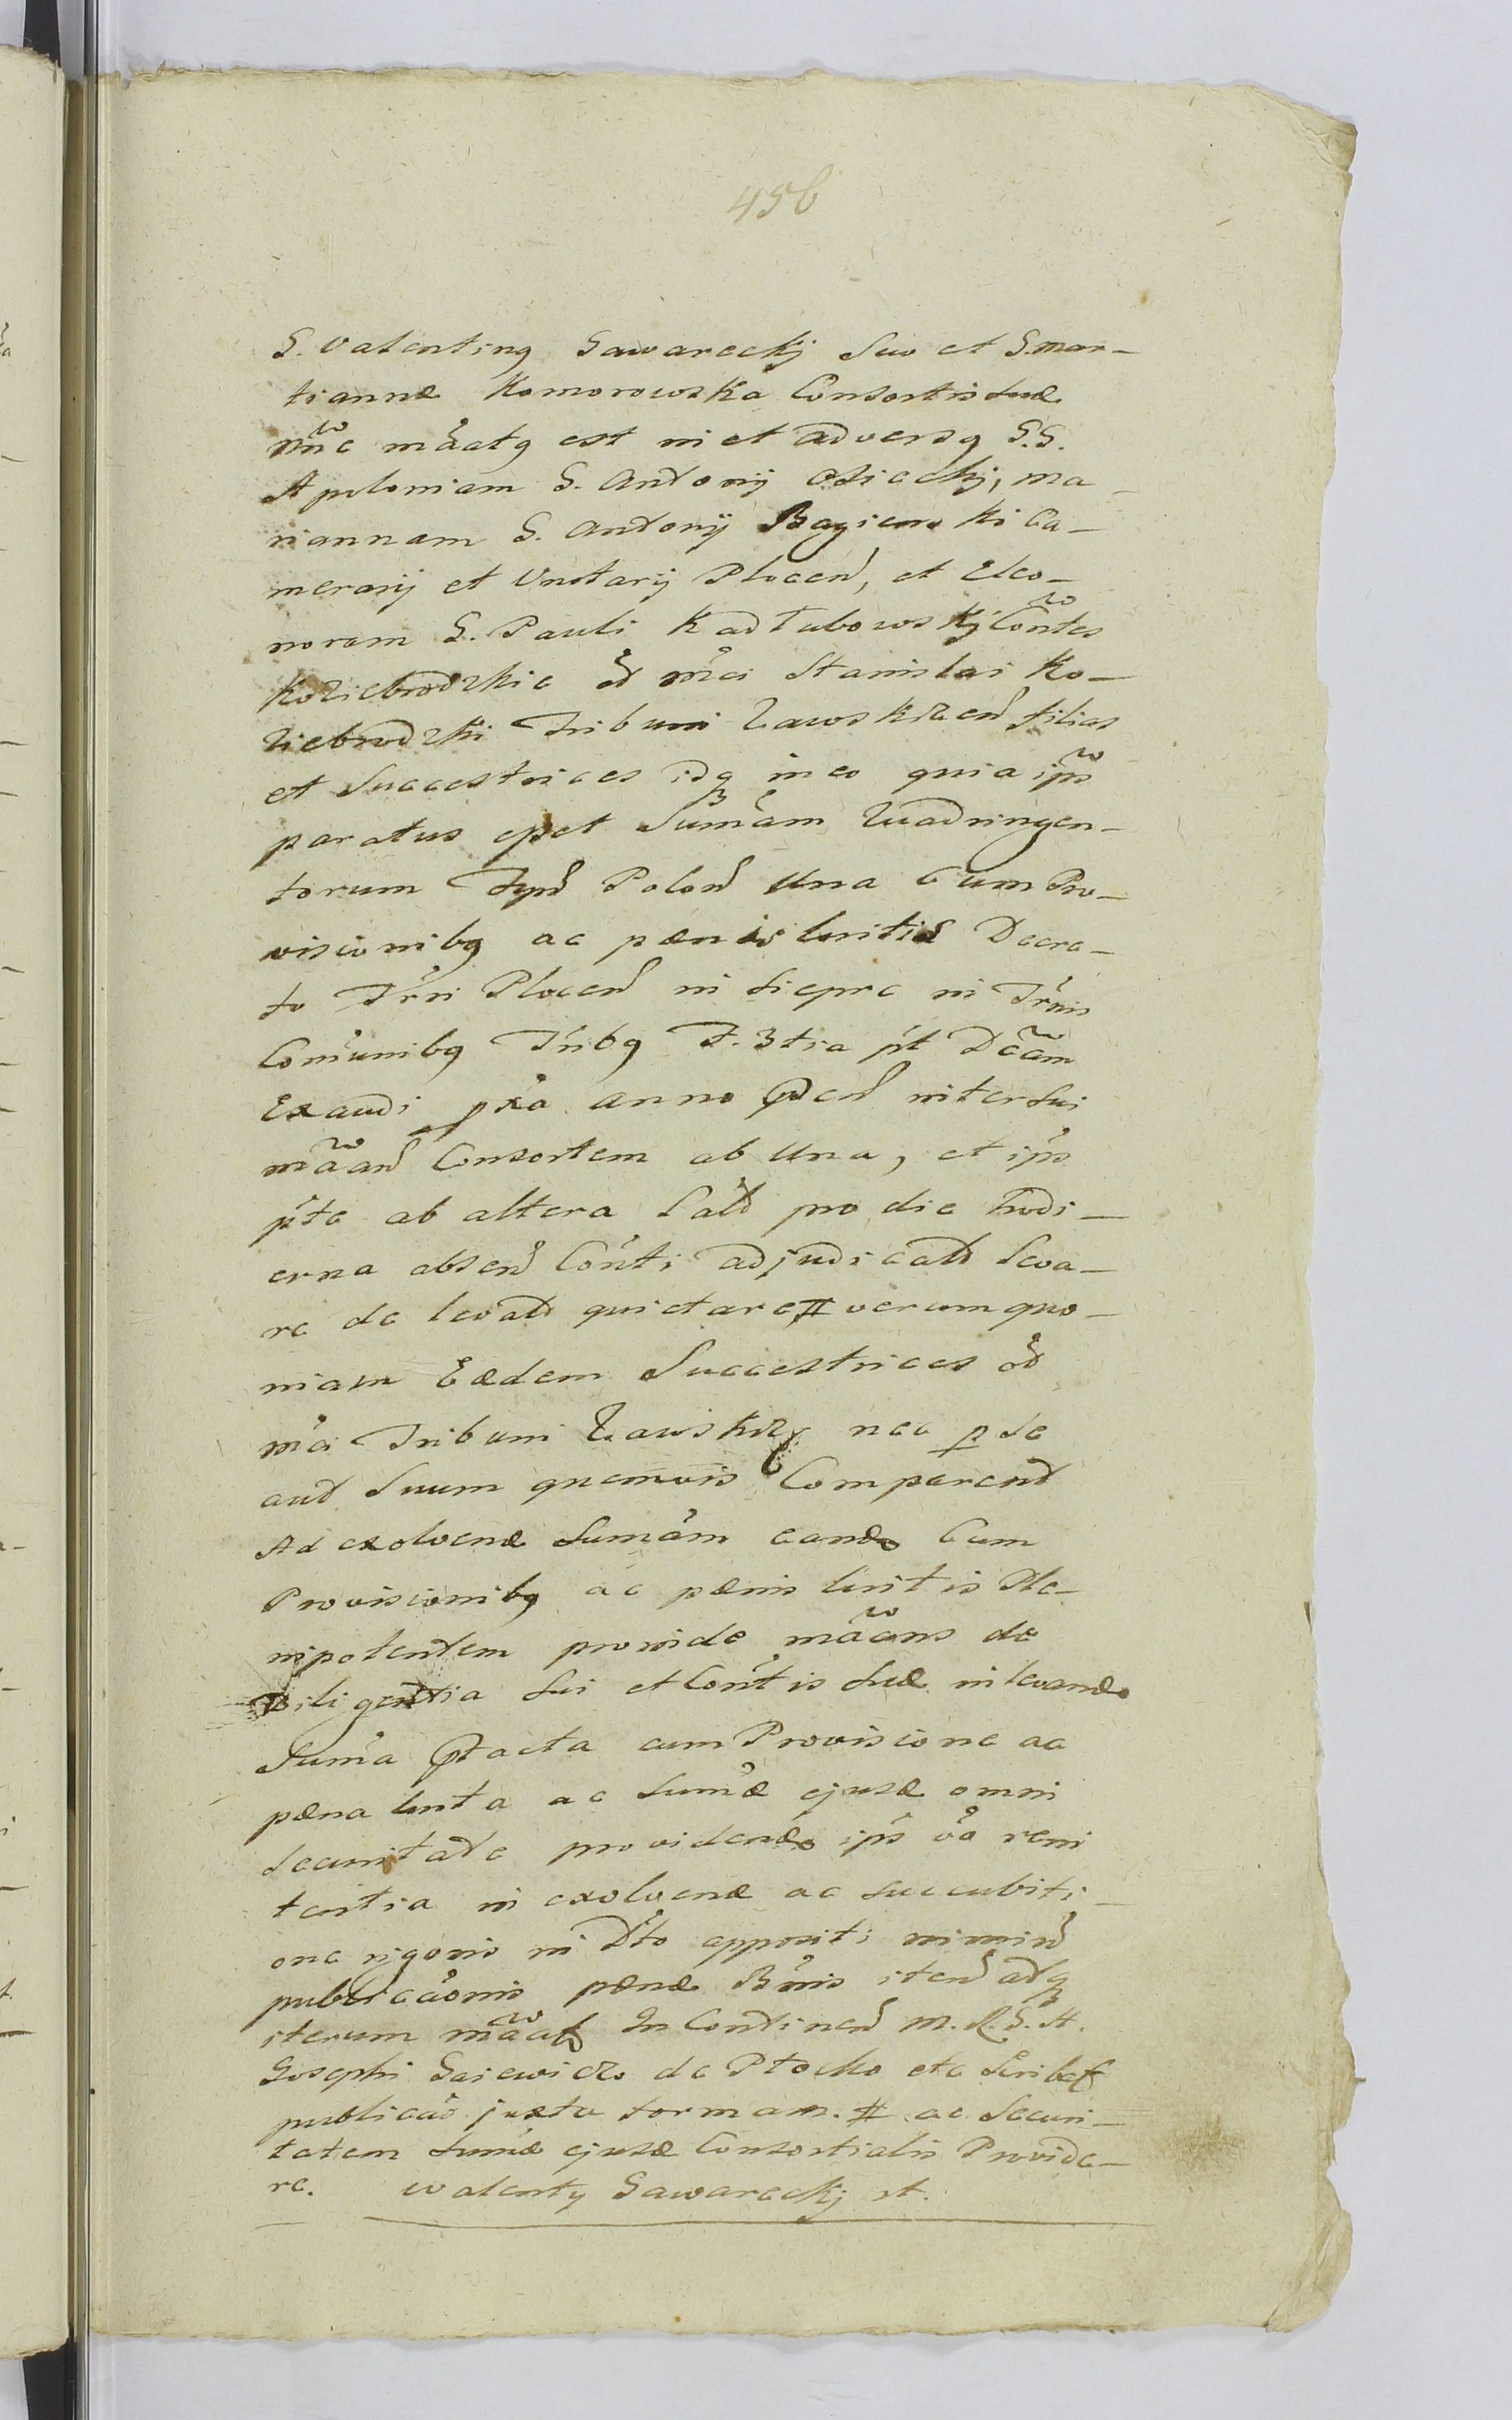 456
G. Valentinq Gawareckj Suo et G. Mar–
tiannæ Komorowska Consortis Suæ
nõe mãctq est in et adversq G.G.
Apoloniam G. Antonij Osieckj, Ma–
riannam G. Antonij Bagienski Ca–
merarij et Vnotarij Plocen, et Eleo–
noram G. Pauli Kadłubowskj Contes
Koziebrodzkie od mci Stanislai Ko–
ziebrodzki Tribuni Zawskrzen filias
et Successtrices idq in eo quia ips
paratus esset Sumam Quadringen–
torum flpol Polon una Cum Pro–
visionibq ac pænis luitis Decre–
to Trri Plocen in Sieprc in Trnis
Comunibq Tribq F. 3tia pt Dcam
Exaudi pxa anno pden inter Sui
mãan Consortem ab una, et ips
pte ab altera Lat pro die hodi–
erna absen Conti adjudicat Leva–
re de levat quietare # verum quo–
niam Eædem Successtrices od
mci Tribuni Zawskrz nec p se
aut Suum quemvis Comparent
Ad exolvenæ Sumam eande Cum
Provisionibq ac pænis luitis Ple–
nipotentem proinde mãans de
Diligentia Sui et Contis Suæ in levande
Suma ptacta cum Provisione ac
pæna luita ac Sumæ ejusæ omni
securitate providende ips vo reni
tentia in exolvenæ ac succubiti–
one rigoris in Dto appositi nimin
publicaonis pænæ Bnis iten atq
iterum mãat In Continen M. R. G. A.
Josephi Gaiewicz de Płocko etc Scribal
publicao juxta formam. # ac Securi–
tatem Sumæ ejusæ Consortialis Provide–
re. Walenty Gawareckj st.